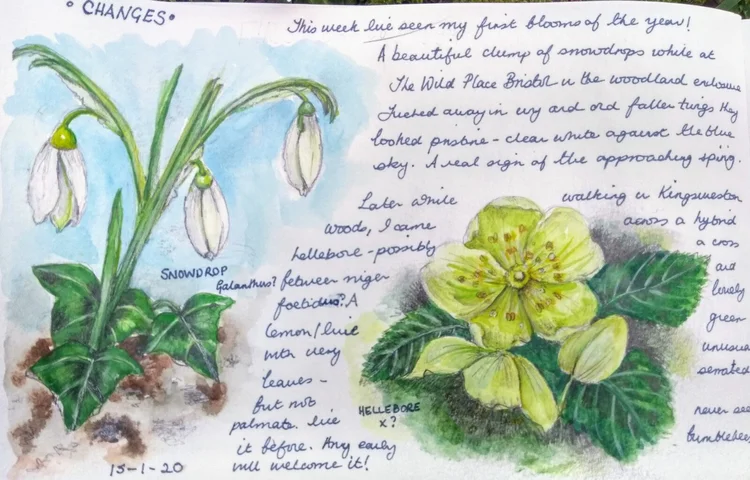 • CHANGES •
This week I've seen my first blooms of the year!
A beautiful clump of snowdrops while at
The Wild Place Bristol in the woodland enclosure
Tucked away in ivy and old fallen twigs they
looked pristine - clear white against the blue
sky. A real sign of the approaching spring.
Later while walking in Kingsweston
woods, I came across a hybrid
hellebore - possibly a cross
between niger and
foetidus? A lovely
lemon/lime green
with very unusual
leaves - serrated
but not
palmate. I've never see
it before. Any early bumblebee
will welcome it!
SNOWDROP
Galanthus?
HELLEBORE
x?
15-1-20